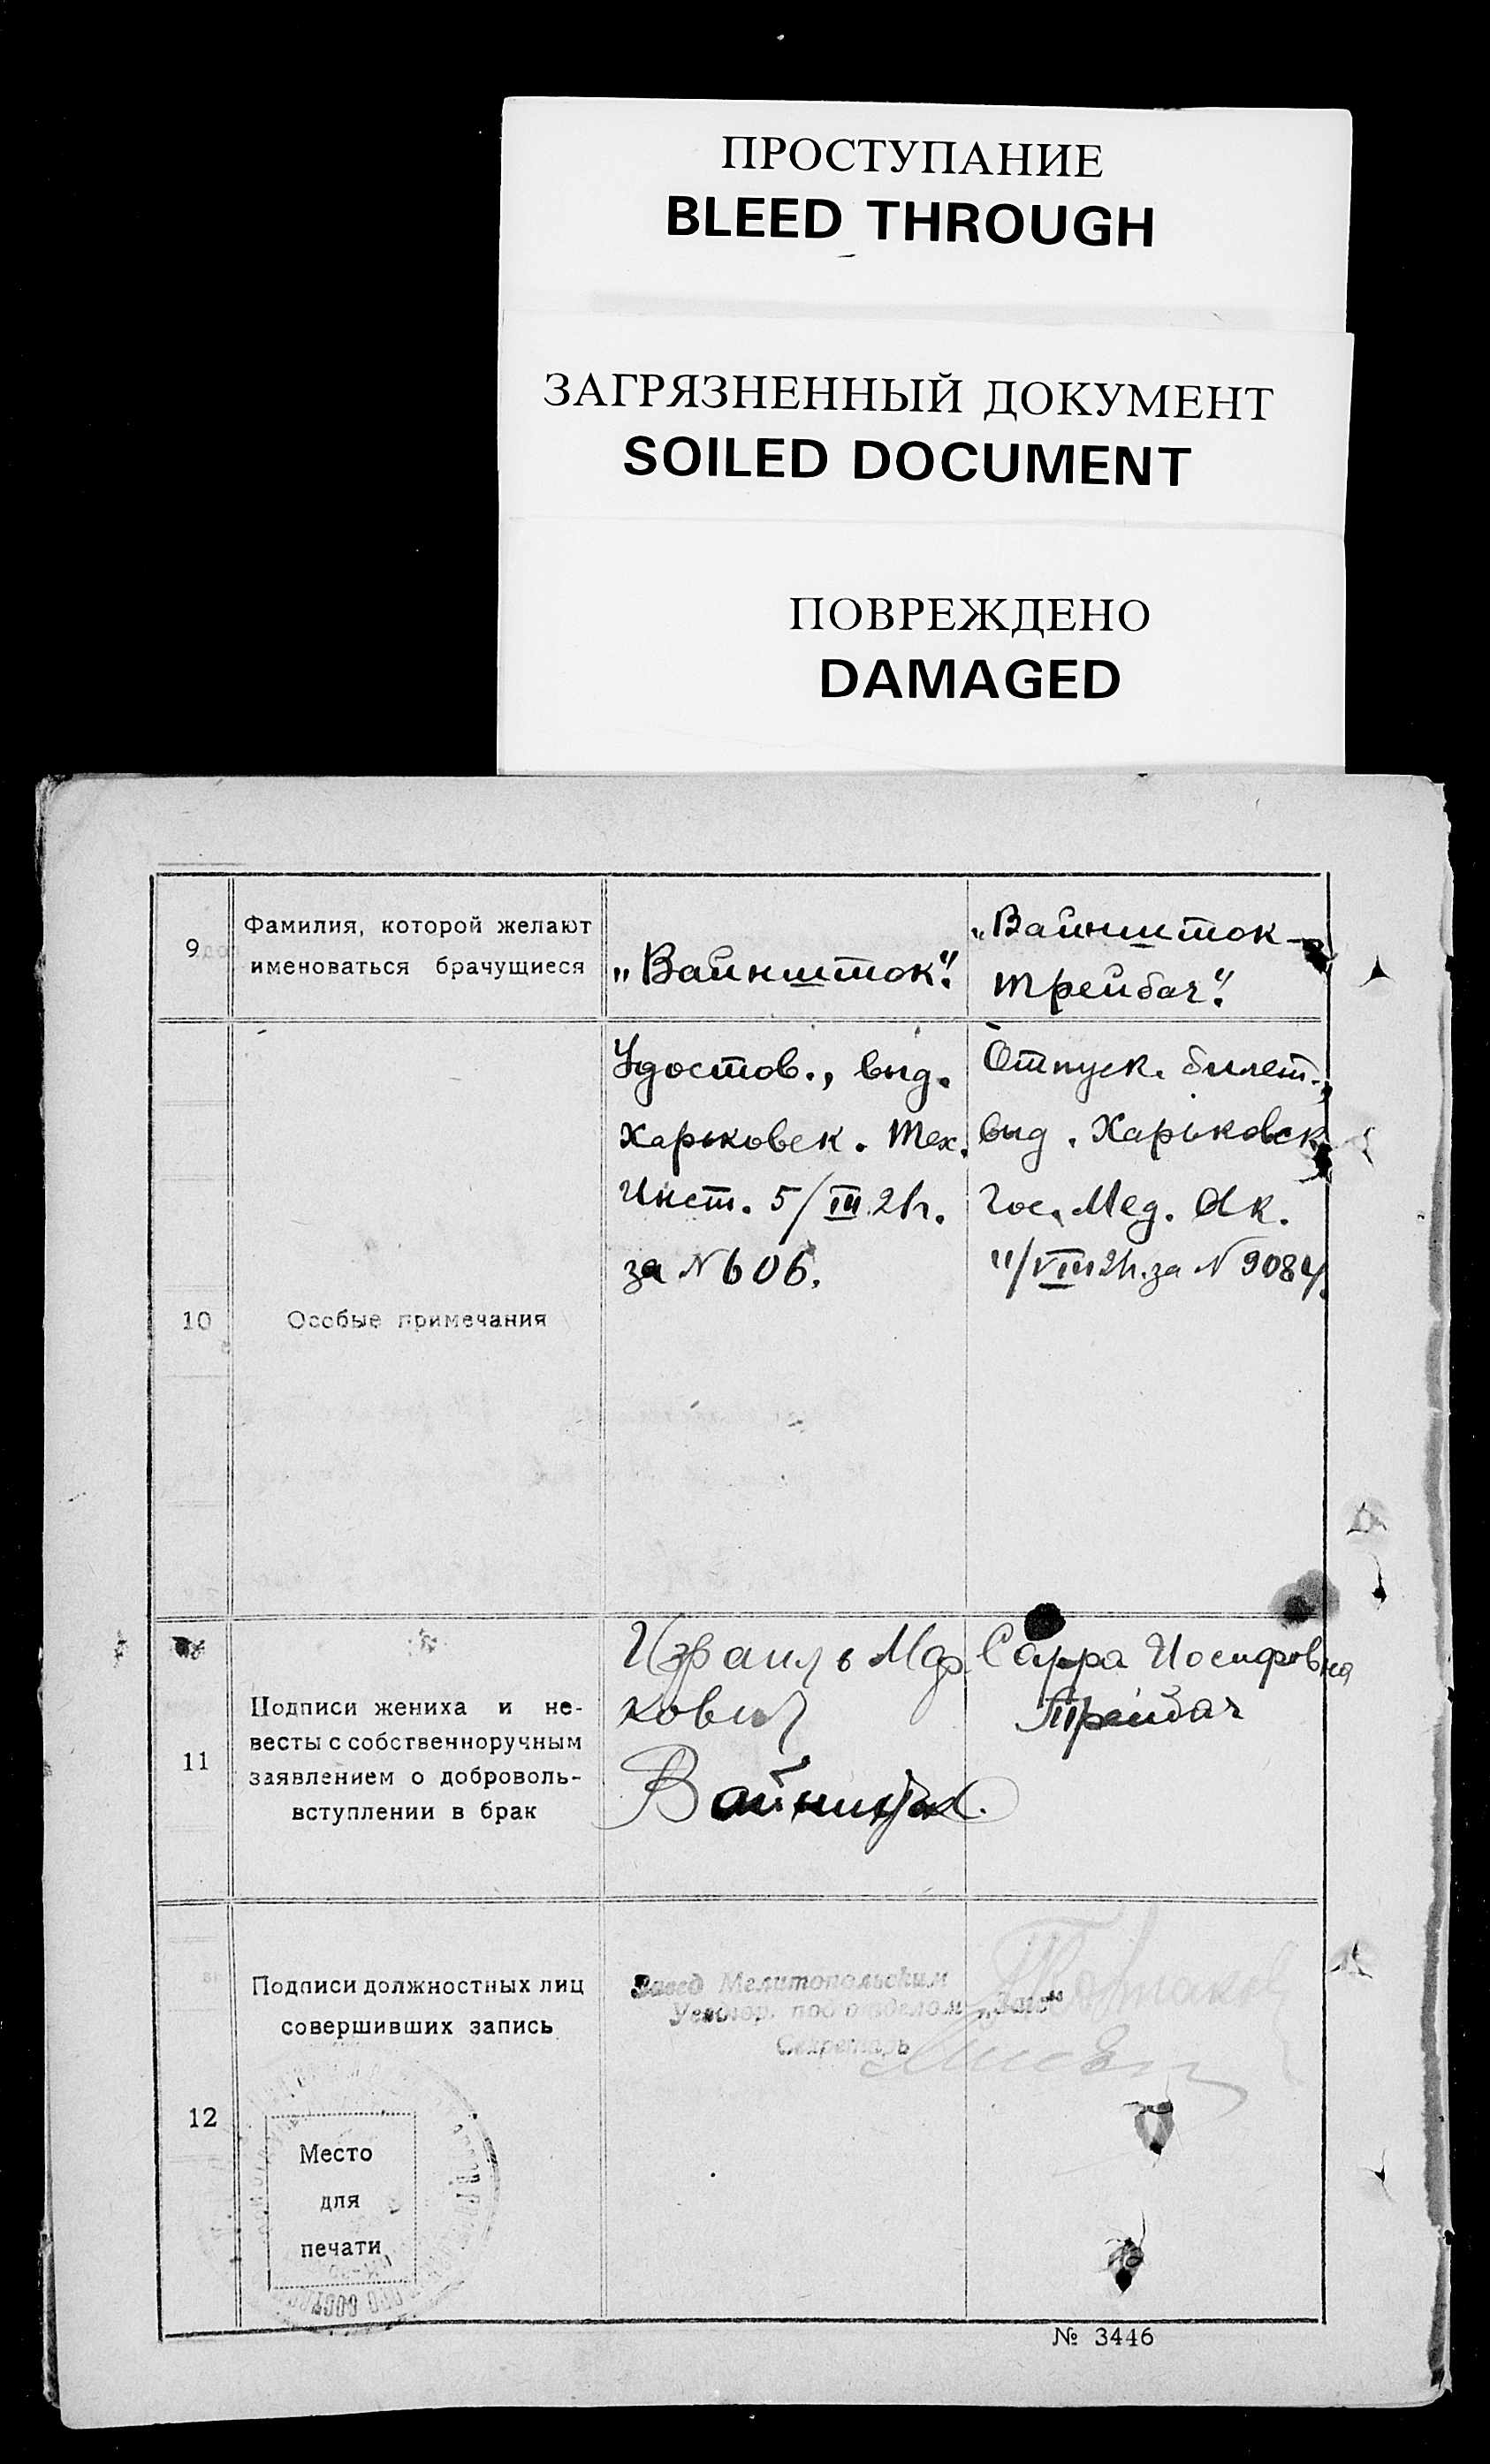 ПРОСТУПАНИЕ
BLEED THROUGH
ЗАГРЯЗНЕННЫЙ ДОКУМЕНТ
SOILED DOCUMENT
ПОВРЕЖДЕНО
DAMAGED
9
Фамилия, которой желают
именоваться брачущиеся
„Вайншток".
„Вайншток-
Трейбач".
10
Особые примечания
Удостов., выд.
Харьковск. Тех.
Инст. 5/III 21г.
за N 606.
Отпуск. билет.,
выд. Харьковск.
Гос. Мед. Ак.
11/VIII 21г. за N 9084.
11
Подписи жениха и не-
весты с собственноручным
заявлением о доброволь-
вступлении в брак
Израиль Мар
кович
Вайншток.
Сарра Иосифовна
Трейбач
12
Подписи должностных лиц
совершивших запись
Завед Мелитопольским
подотделом „Загс"
Секретарь
Место
для
печати
№ 3446